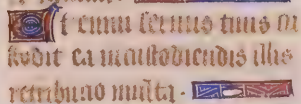 Et enim seruus tuus cu
stodit ea in custodiendis illis
retributio multa.